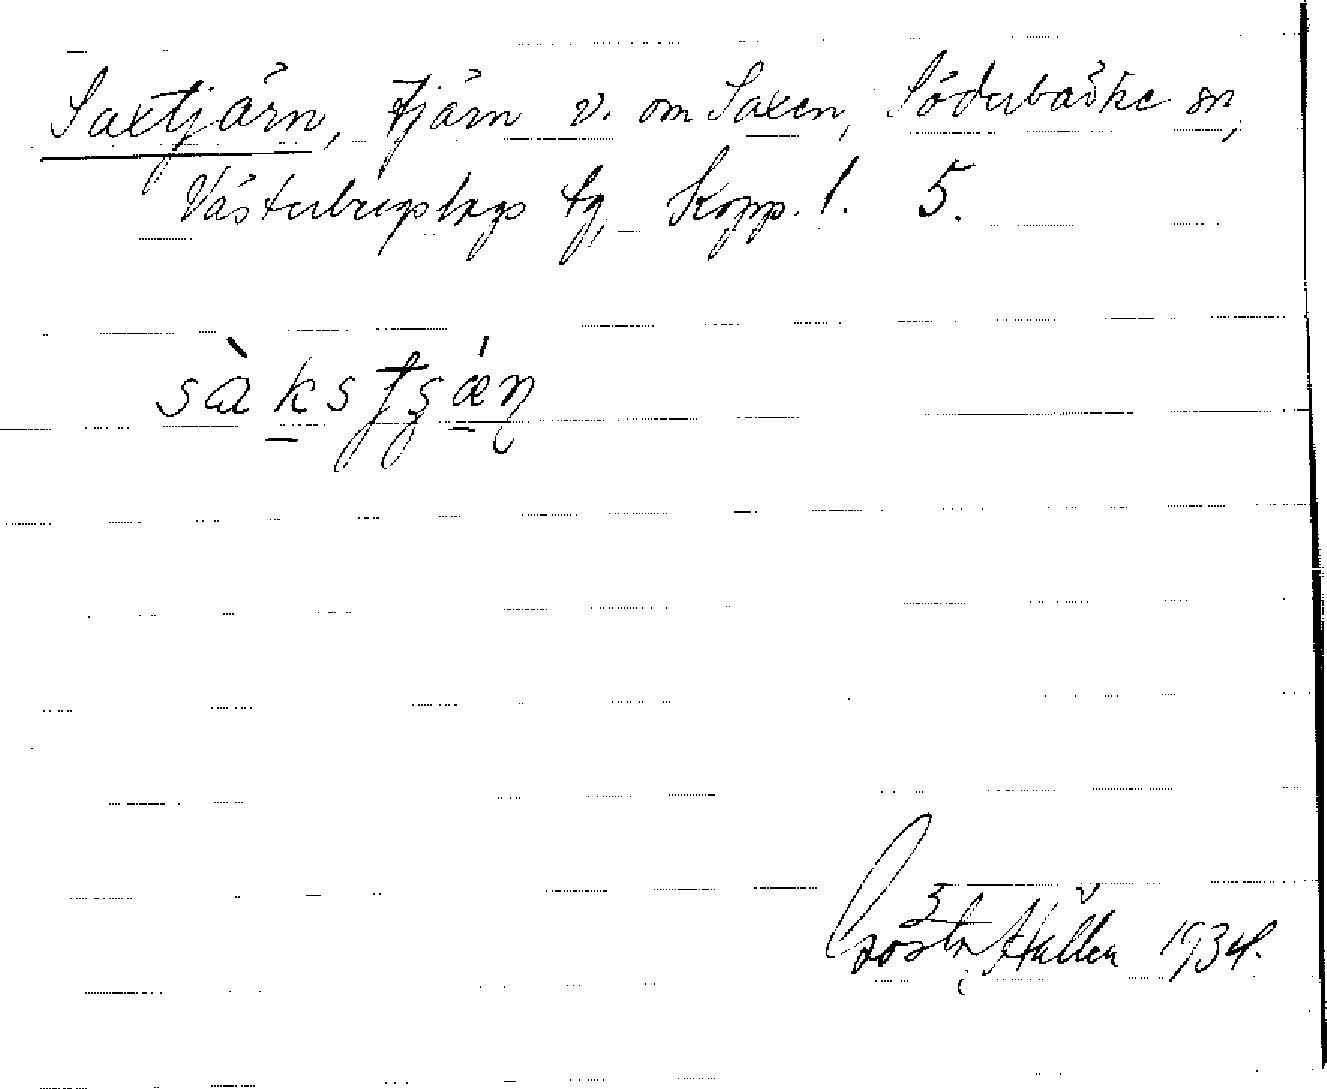 Saxtjärn, tjärn v. om Saxen, Söderbärke sn,
Västerbergslags tg, Kopp. l. 5.
sàksʈʂǽɳ
Gösta Hallén 1934.